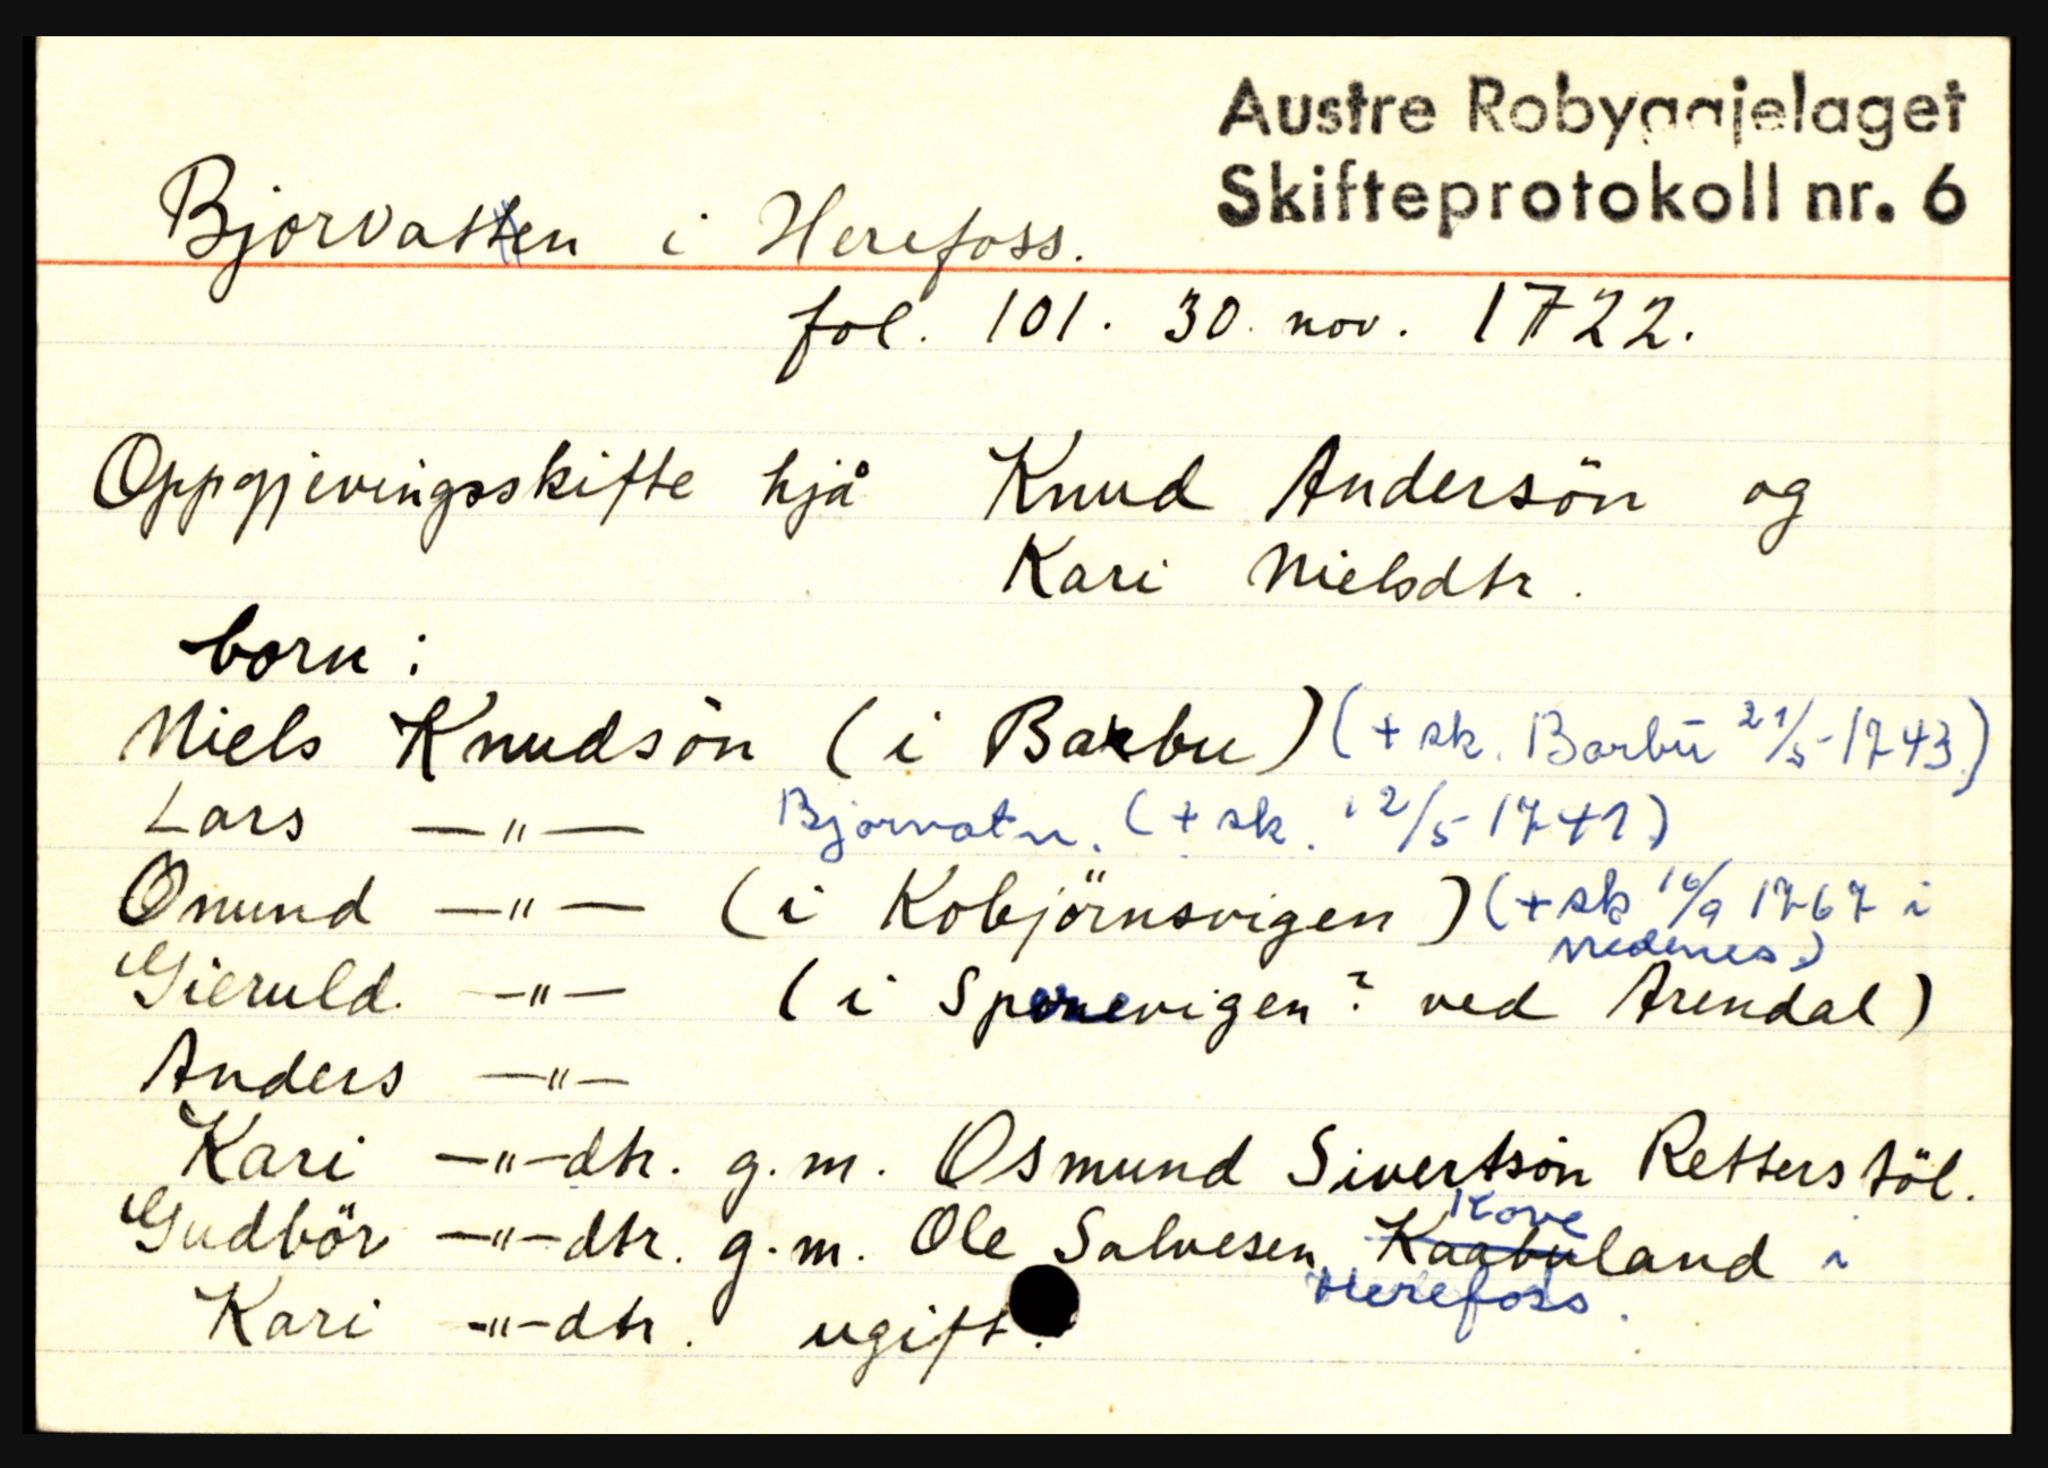 Austre Robyggjelaget
Skifteprotokoll nr. 6
Bjorvatten i Herefoss.
fol. 101. 30. nov. 1722.
Oppgjevingsskifte hjå Knud Andersön og
Kari Nielsdtr.
born:
Niels Knudsön (i Barbu) (+ sk. Barbu 21/5-1743)
Lars —"— Bjorvatn. (+ sk. 12/5 1741)
Onund —"— (i Kobjörnsvigen) (+ sk 16/9 1767 i
Nedenes)
Gieruld. —"— (i Sponevigen? ved Arendal)
Anders —"—
Kari —"—dtr. g.m. Osmund Sivertsön Retterstöl.
Kove
Gudbör —"—dtr. g.m. Ole Salvesen Kaabuland i
Herefoss.
Kari —"—dtr. ugift.